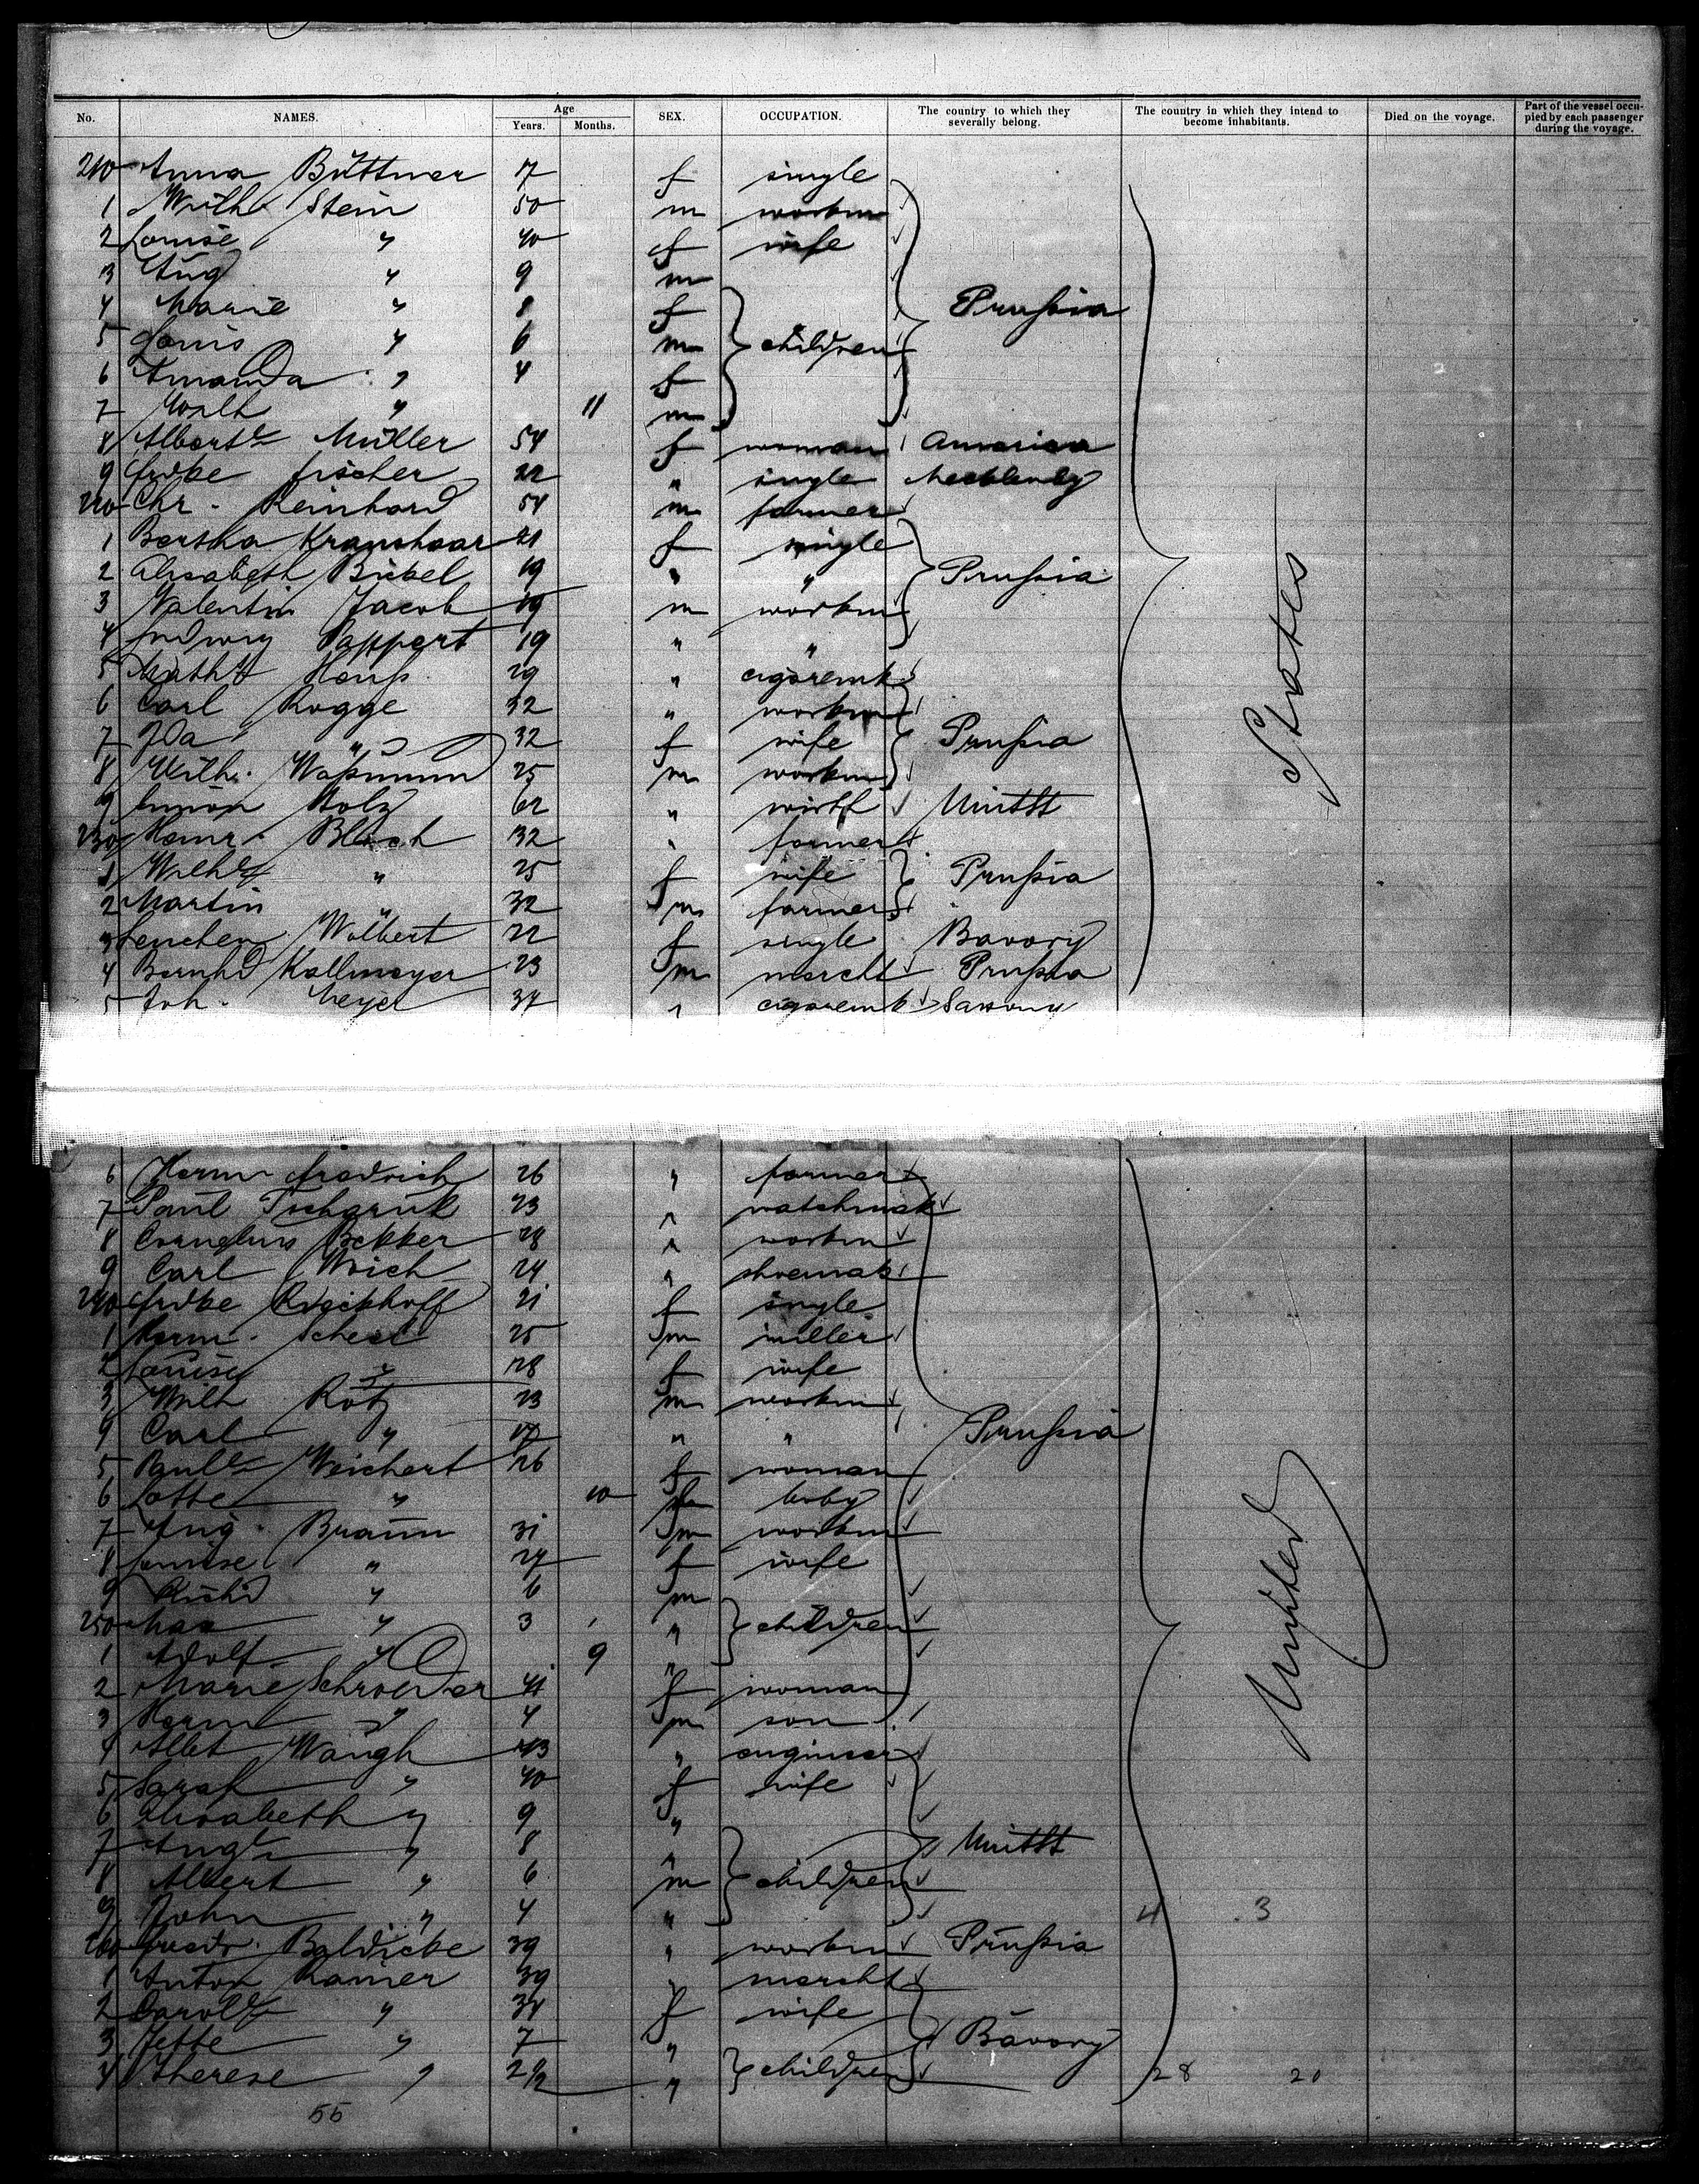 No. NAMES. Age Years. Months. SEX. OCCUPATION. The country to which they severally belong. The country in which they intend to become inhabitants. Died on the voyage. Part of the vessel occupied by each passenger during the voyage.
210 Anna Büttner 17 f single
1 Wilh Stein 50 m workm
2 Louise " 40 f wife
3 Aug " 9 m
4 Marie " 8 f Prußia
5 Louis " 6 m children
6 Amanda " 4 f
7 Wilh " 11 m
8 Albert Müller 54 f woman America
9 Fridke Fischer 22 " single Mecklenbg
220 Chr. Reinhard 54 m farmer
1 Bertha Kranshaar 21 f single
2 Elisabeth Bübel 19 " " Prußia
3 Valentin Jacob 19 m workm
4 Ludwig Pappert 19 " "
5 Math Hauß 29 " cigaremk
6 Carl Rogge 32 " workm
7 Ida " 32 f wife Prußia
8 Wilh. Waßmann 25 m workm
9 Simon Stolz 62 " wirth Unittst
230 Heinr. Block 32 " farmer
1 Wilh " 25 f wife Prußia
2 Martin " 32 m farmer
3 Lenchen Wolbert 22 f single Bavary
4 Bernhd Kallmeyer 23 m mercht Prußia
5 Joh. Meyer 34 " cigaremk Saxony
States
6 Herm Friedrich 26 " farmer
7 Paul 23 " watchmak
8 Cornelius Bekker 28 " workm
9 Carl 24 " shoemak
240 Fridke Rieckhoff 21 f single
1 Herm. Scheel 25 m miller
2 Louise " 28 f wife
3 Wilh 23 m workm
4 Carl " 17 " " Prußia
5 Weichert 26 f woman
6 Lotte " 10 baby
7 Aug. Braun 31 m workm
8 Louise " 24 f wife
9 Richd " 6 m
250 Max " 3 " children
1 Adolf " 9 "
2 Marie Schroeder 41 f woman
3 Herm " 4 m son
4 Albt Waugh 43 " engineer
5 Sarah " 40 f wife
6 Elisabeth " 9 "
7 Aug " 8 " Unittst
8 Albert " 6 m children
9 John " 4 " 4 3
260 Friedr. Baldicke 39 " workm Prußia
1 Anton Ramer 39 " mercht
2 Carol " 34 f wife
3 Jette " 7 " Bavary
4 Therese " 2 1/2 " children 28 20
United
55